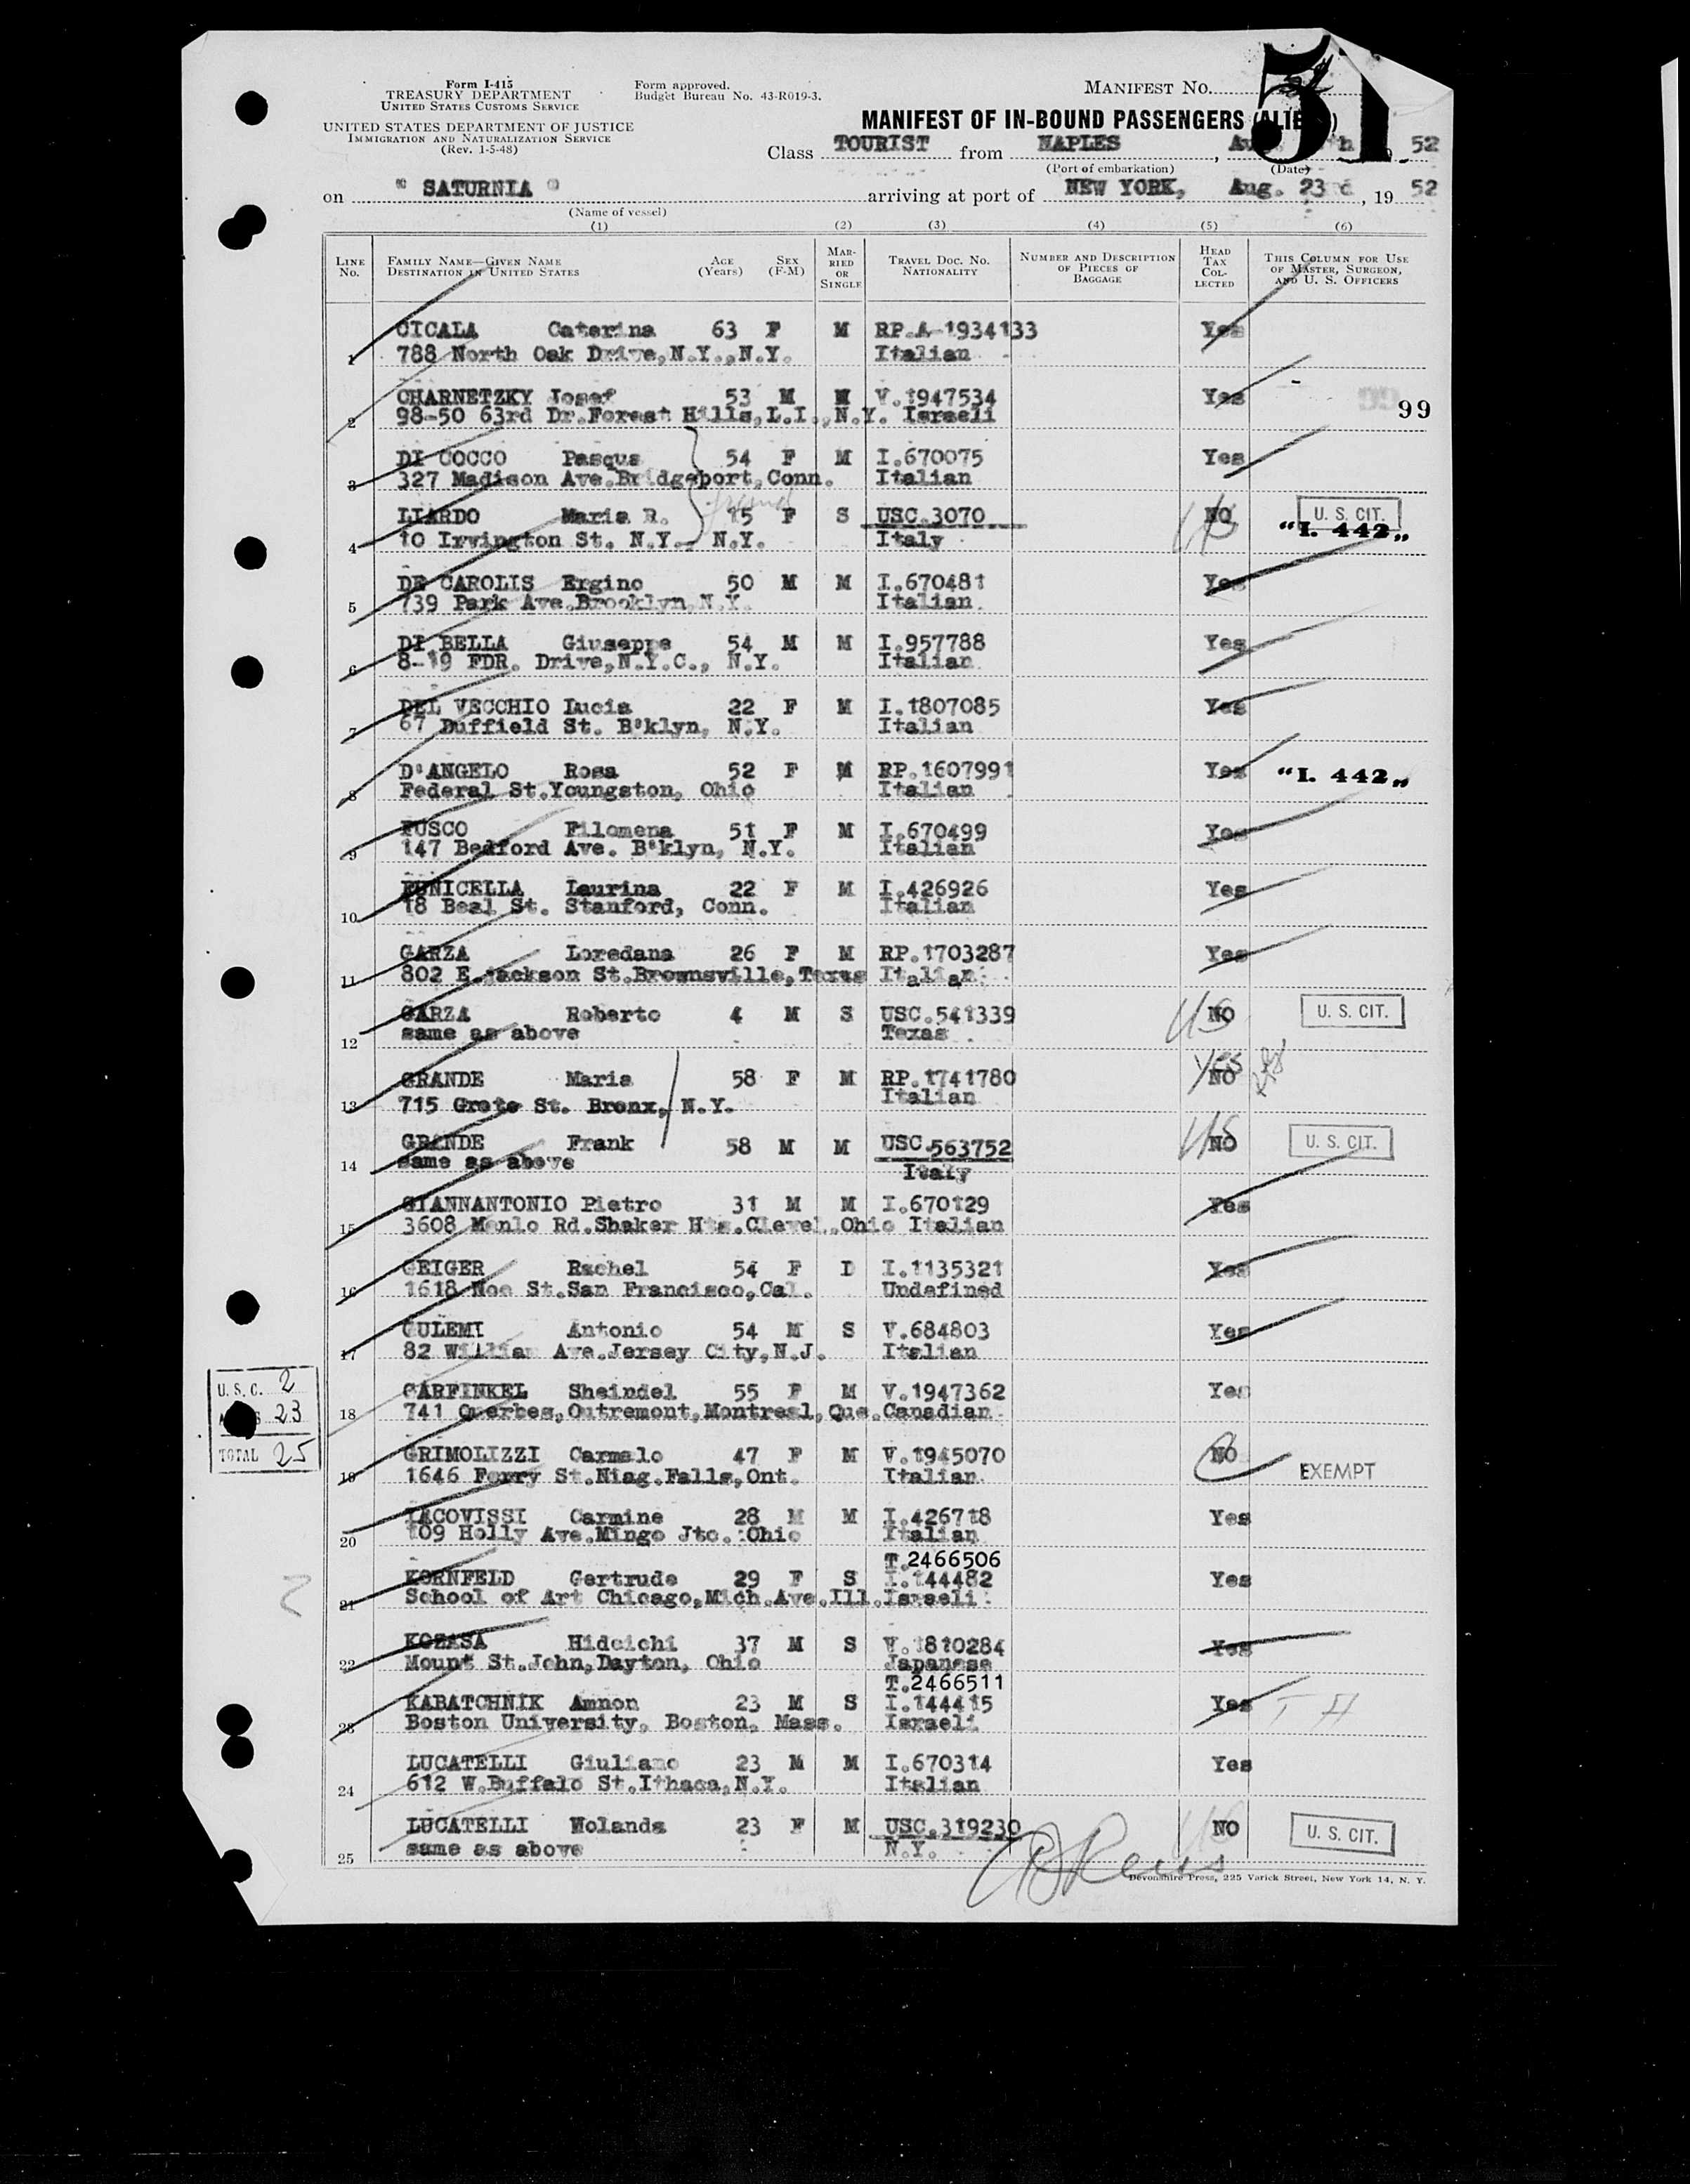 Form I-415
TREASURY DEPARTMENT
UNITED STATES CUSTOMS SERVICE
UNITED STATES DEPARTMENT OF JUSTICE
IMMIGRATION AND NATURALIZATION SERVICE
(Rev. 1-5-48)
Form approved.
Budget Bureau No. 43-R019-3.
MANIFEST NO.
51
MANIFEST OF IN-BOUND PASSENGERS
Class TOURIST from NAPLES, 52
(Port of embarkation) (Date)
on " SATURNIA " arriving at port of NEW YORK, Aug. 23 d, 19 52
(Name of vessel)
(1) (2) (3) (4) (5) (6)
LINE No. FAMILY NAME—GIVEN NAME DESTINATION IN UNITED STATES AGE (Years) SEX (F-M) MARRIED OR SINGLE TRAVEL DOC. NO. NATIONALITY NUMBER AND DESCRIPTION OF PIECES OF BAGGAGE HEAD TAX COLLECTED THIS COLUMN FOR USE OF MASTER, SURGEON, AND U. S. OFFICERS
CICALA Caterina 63 F M RP.A-1934133 Yes
1 788 North Oak Drive,N.Y.,N.Y. Italian
CHARNETZKY Josef 53 M M V.1947534 Yes
99
2 98-50 63rd Dr.Forest Hills,L.I.,N.Y. Israeli
DI COCCO Pasqua 54 F M I.670075 Yes
3 327 Madison Ave.Bridgeport,Conn. Italian
LIARDO Maria R. 15 F S USC.3070 US NO U. S. CIT.
4 10 Irvington St. N.Y. N.Y. Italy "I. 442"
DE CAROLIS Ergino 50 M M I.670481 Yes
5 739 Park Ave.Brooklyn,N.Y. Italian
DI BELLA Giuseppe 54 M M I.957788 Yes
6 8-19 FDR. Drive,N.Y.C., N.Y. Italian
DEL VECCHIO Lucia 22 F M I.1807085 Yes
7 67 Duffield St. B'klyn, N.Y. Italian
D'ANGELO Rosa 52 F M RP.1607991 Yes "I. 442"
8 Federal St.Youngston, Ohio Italian
FUSCO Filomena 51 F M I.670499 Yes
9 147 Bedford Ave. B'klyn, N.Y. Italian
FUNICELLA Laurina 22 F M I.426926 Yes
10 18 Beal St. Stanford, Conn. Italian
GARZA Loredana 26 F M RP.1703287 Yes
11 802 E.jackson St.Brownsville,Texas Italian
GARZA Roberto 4 M S USC.541339 US NO U. S. CIT.
12 same as above Texas
Yes
GRANDE Maria 58 F M RP.1741780 NO
13 715 Grote St. Bronx, N.Y. Italian
GRANDE Frank 58 M M USC.563752 US NO U. S. CIT.
14 same as above Italy
GIANNANTONIO Pietro 31 M M I.670129 Yes
15 3608 Menlo Rd.Shaker Hts.Clevel.Ohio Italian
GEIGER Rachel 54 F D I.1135321 Yes
16 1618 Noe St.San Francisco,Cal. Undefined
GULEMI Antonio 54 M S V.684803 Yes
17 82 William Ave.Jersey City,N.J. Italian
U.S.C. 2
23
TOTAL 25
GARFINKEL Sheindel 55 F M V.1947362 Yes
18 741 Querbes,Outremont,Montreal,Que.Canadian
GRIMOLIZZI Carmelo 47 F M V.1945070 NO
19 1646 Ferry St.Niag.Falls,Ont. Italian EXEMPT
IACOVISSI Carmine 28 M M I.426718 Yes
20 109 Holly Ave.Mingo Jtc. Ohio Italian
T.2466506
KORNFELD Gertrude 29 F S I.144482 Yes
21 School of Art Chicago,Mich.Ave.Ill.Israeli
2
KOZASA Hideichi 37 M S V.1810284 Yes
22 Mount St.John,Dayton, Ohio Japanese
T.2466511
KABATCHNIK Amnon 23 M S I.144415 Yes
23 Boston University, Boston, Mass. Israeli
LUCATELLI Giuliano 23 M M I.670314 Yes
24 612 W.Buffalo St.Ithaca,N.Y. Italian
LUCATELLI Wolanda 23 F M USC.319230 US NO U. S. CIT.
25 same as above N.Y.
Devonshire Press, 225 Varick Street, New York 14, N. Y.